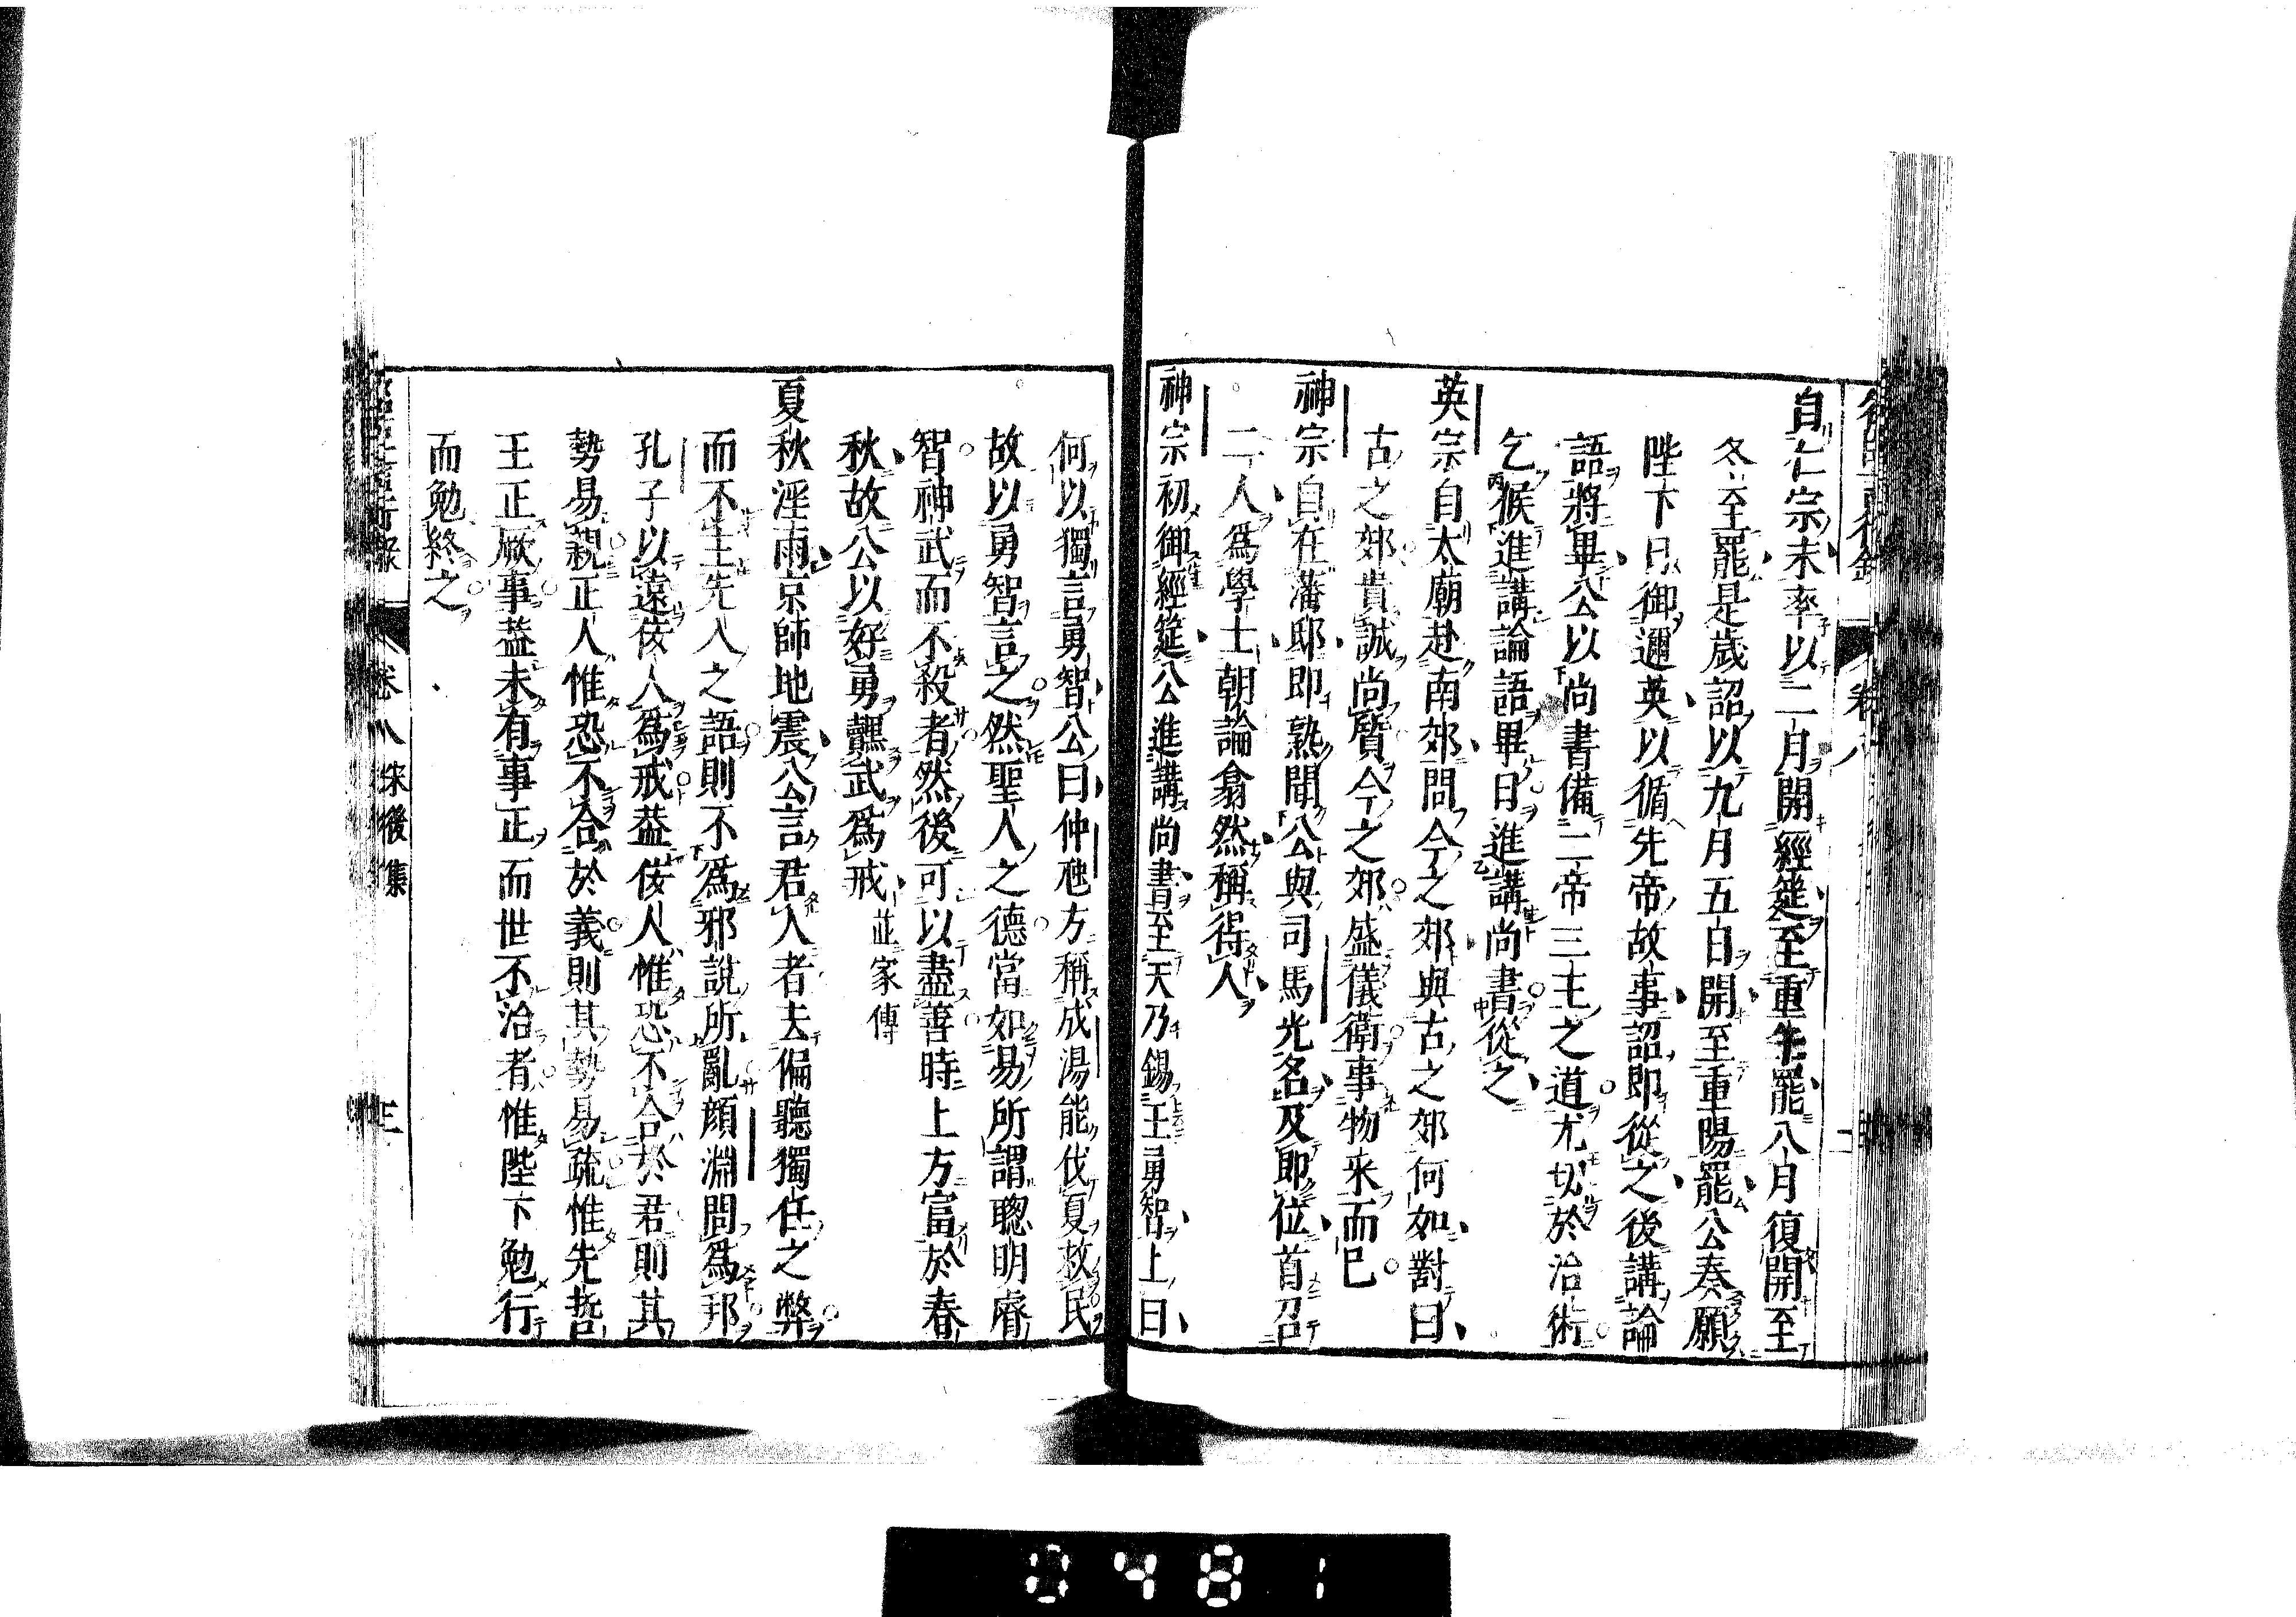 自仁宗末率以二月開經筵至重午罷八月復開至
冬至罷是歲詔以九月五日開至重陽罷公奏願
陛下日御邇英以循先帝故事詔即從之後講論
語將畢公以尚書備二帝三王之道尤切於治術
乞候進講論語畢日進講尚書從之
英宗自太廟赴南郊問今之郊與古之郊何如對曰
古之郊貴誠尚質今之郊盛儀衛事物采而已
神宗自在藩邸即熟聞公與司馬光名及即位首召
二人爲學士朝論翕然稱得人
神宗初御經筵公進講尚書至天乃錫王勇智上曰
何以獨言勇智公曰仲虺方稱成湯能伐夏救民
故以勇智言之然聖人之德當如易所謂聰明睿
智神武而不殺者然後可以盡善時上方富於春
秋故公以好勇黷武爲戒 並家傳
夏秋淫雨京師地震公言君人者去偏聽獨任之弊
而不主先入之語則不爲邪說所亂顏淵問爲邦
孔子以遠佞人爲戒葢佞人惟恐不合於君則其
勢易親正人惟恐不合於義則其勢易疏惟先哲
王正厥事葢未有事正而世不治者惟陛下勉行
而勉終之
卷八 宋後集
三
3481